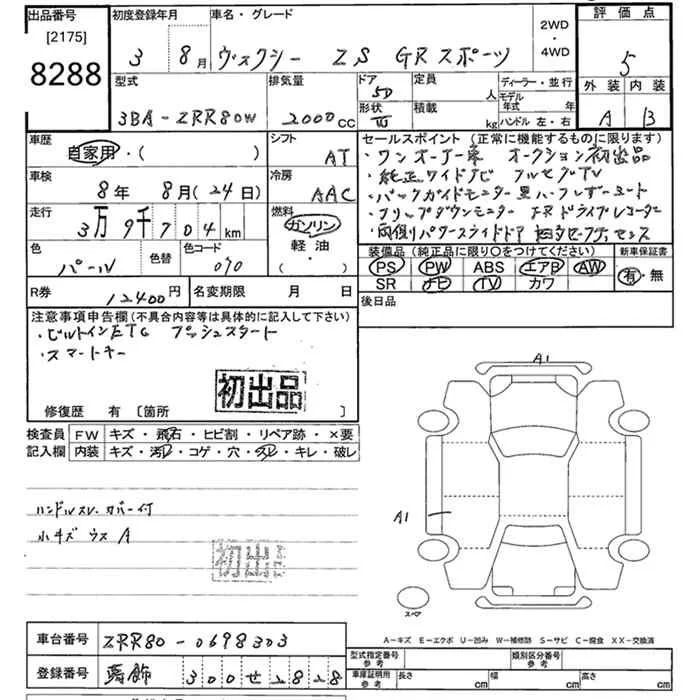 出品番号
[2175]
8288
初度登録年月
3 8月
車名・グレード
ヴォクシー ZS GRスポーツ
2WD
・
4WD
評価点
5
外装 内装
A B
型式
3BA-ZRR80W
排気量
2000cc
ドア
5D
形状
定員
人
積載
kg
ディーラー・並行
モデル年式 年
ハンドル 左・右
車歴
自家用・( )
シフト
AT
車検
8年 8月(24日)
冷房
AAC
走行
3万9千704km
燃料
ガソリン
軽油
( ・ )
色
パール
色替
色コード
070
セールスポイント (正常に機能するものに限ります)
・ワンオーナー車 オークション初出品
・純正ワイドナビ フルセグTV
・バックガイドモニター 黒ハーフレザーシート
・フリップダウンモニター 前後ドライブレコーダー
・両側パワースライドドア トヨタセーフティセンス
装備品 (純正品に限り○をつけてください)
PS PW ABS エアB AW
SR ナビ TV カワ
新車保証書
有・無
R券
12400円
名変期限 月 日
後日品
注意事項申告欄(不具合内容等は具体的に記入して下さい)
・ビルトインETC プッシュスタート
・スマートキー
初出品
修復歴 有 [箇所 ]
検査員記入欄
FW キズ・飛石・ヒビ割・リペア跡・×要
内装 キズ・汚れ・コゲ・穴・スレ・キレ・破レ
ハンドルスレ カバー付
小キズ ウス A
初出品
A1
A1
スペア
A-キズ E-エクボ U-凹み W-補修跡 S-サビ C-腐食 XX-交換済
車台番号
ZRR80-0698303
登録番号
300 せ 2828
型式指定番号
参考
類別区分番号
参考
車庫証明用
参考
長さ cm 幅 cm 高さ cm